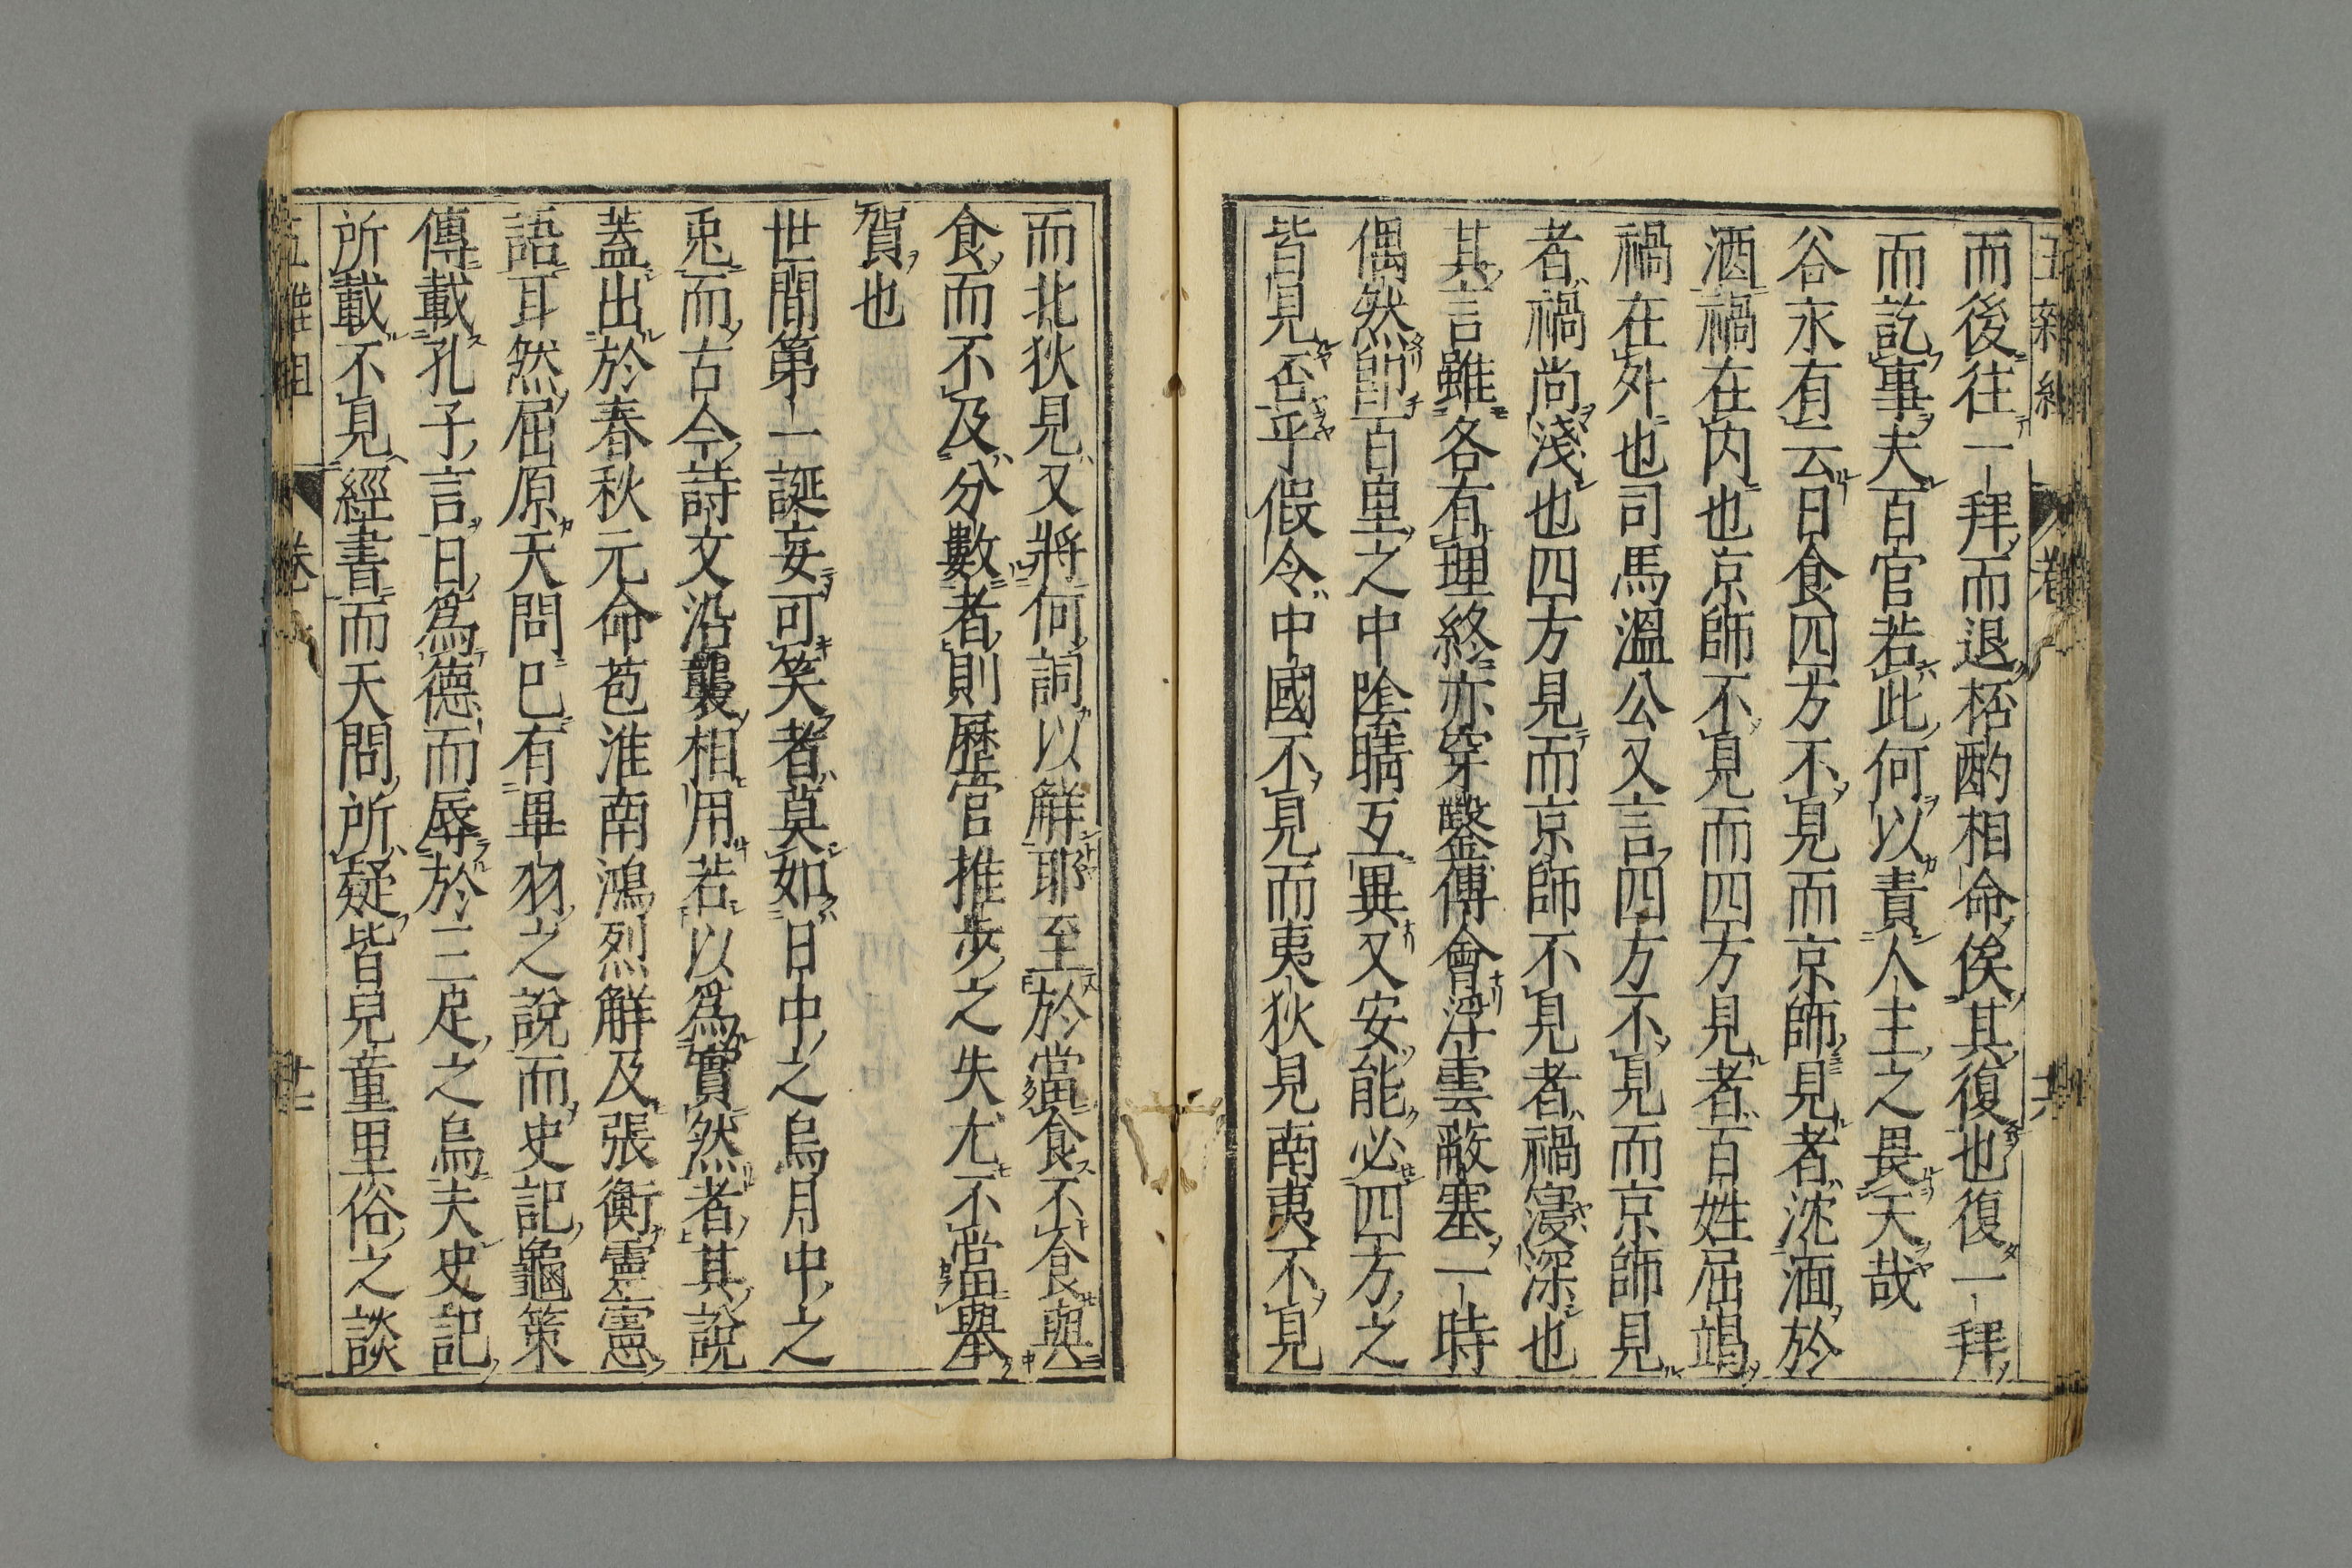 而後往一拜而退桮酌相命俟其復也復一拜
而訖事夫百官若此何以責人主之畏天哉
谷永有云日食四方不見而京師見者沈湎於
酒禍在内也京師不見而四方見者百姓屈竭
禍在外也司馬溫公又言四方不見而京師見
者禍尚淺也四方見而京師不見者禍寖深也
其言雖各有理終亦穿鑿傅會浮雲蔽塞一時
偶然即百里之中陰晴互異又安能必四方之
皆見否乎假令中國不見而夷狄見南夷不見
而北狄見又將何詞以解耶至於當食不食與
食而不及分數者則曆官推步之失尤不當舉
賀也
世間第一誕妄可笑者莫如日中之烏月中之
兎而古今詩文沿襲相用若以爲實然者其說
蓋出於春秋元命苞淮南鴻烈解及張衡靈憲
語耳然屈原天問已有畢羽之說而史記龜策
傳載孔子言日爲德而辱於三足之烏夫史記
所載不見經書而天問所疑皆兒童里俗之談